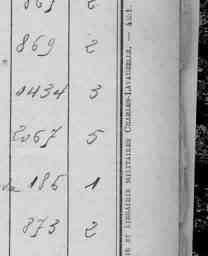 869 2
1434 3
2067 5
186 1
873 2
IE ET LIBRAIRIE MILITAIRES CHARLES-LAVAUZELLE. —